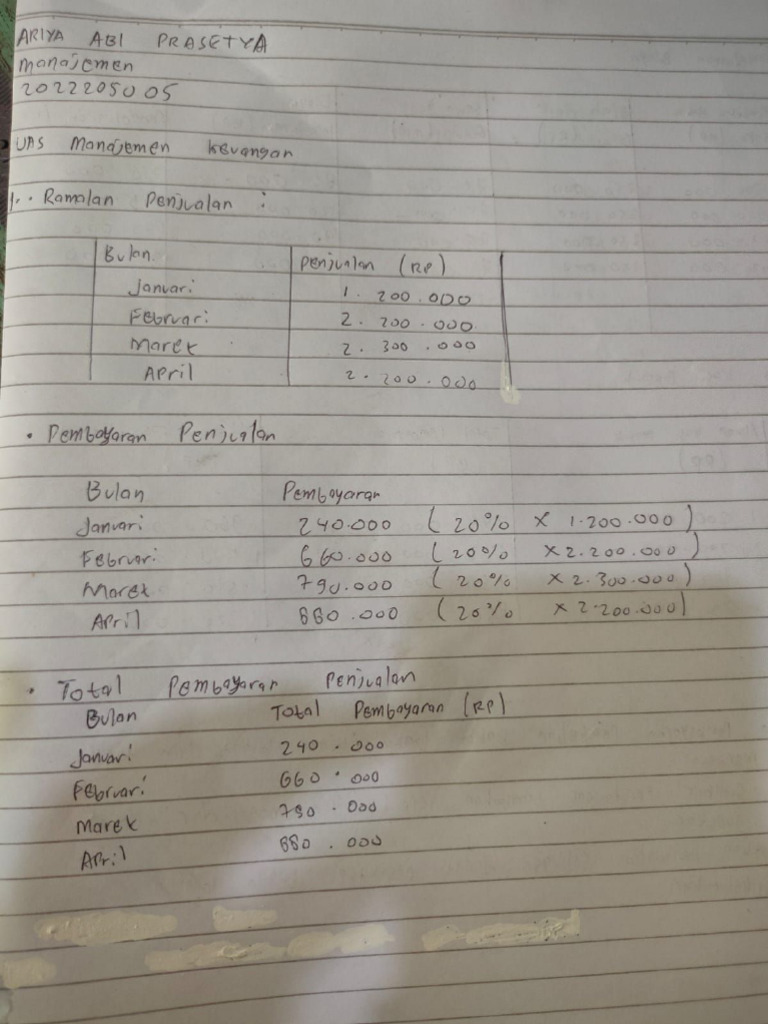 ARIYA ABI PRASETYA
Manajemen
2022205005
UAS Manajemen Keuangan
1. Ramalan Penjualan :
Bulan Penjualan (Rp)
Januari 1.200.000
Februari 2.200.000
Maret 2.300.000
April 2.200.000
• Pembayaran Penjualan
Bulan Pembayaran
Januari 240.000 (20% x 1.200.000)
Februari 660.000 (20% x 2.200.000)
Maret 790.000 (20% x 2.300.000)
April 880.000 (20% x 2.200.000)
• Total Pembayaran Penjualan
Bulan Total Pembayaran (RP)
Januari 240.000
Februari 660.000
Maret 790.000
April 880.000